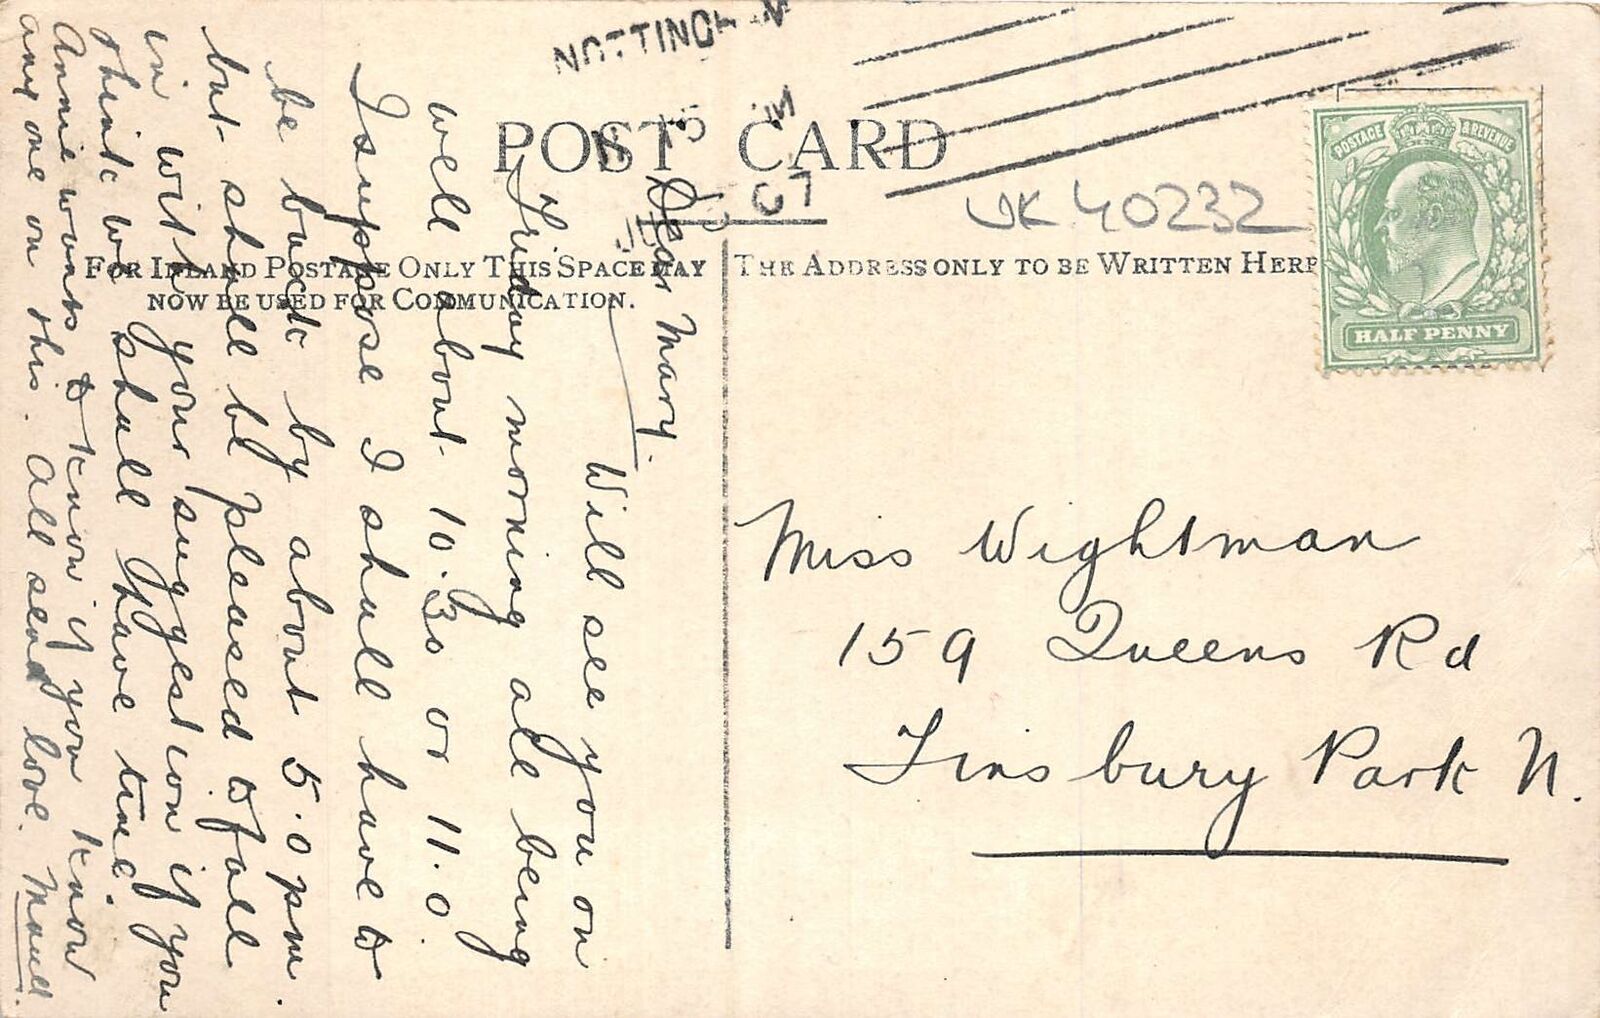 NOTTINGHAM
POST CARD
UK 40232
FOR INLAND POSTAGE ONLY THIS SPACE MAY
NOW BE USED FOR COMMUNICATION.
THE ADDRESS ONLY TO BE WRITTEN HERE
POSTAGE & REVENUE
HALF PENNY
Dear Mary.
Will see you on
Friday morning all being
well about 10.30 or 11.0.
I suppose I shall have to
be back by about 5.0 pm.
but shall be pleased to fall
in with your suggestion if you
think we shall have time.
Annie wants to know if you know
any one on this. All send love. Maud.
Miss Wightman
159 Queens Rd
Finsbury Park N.